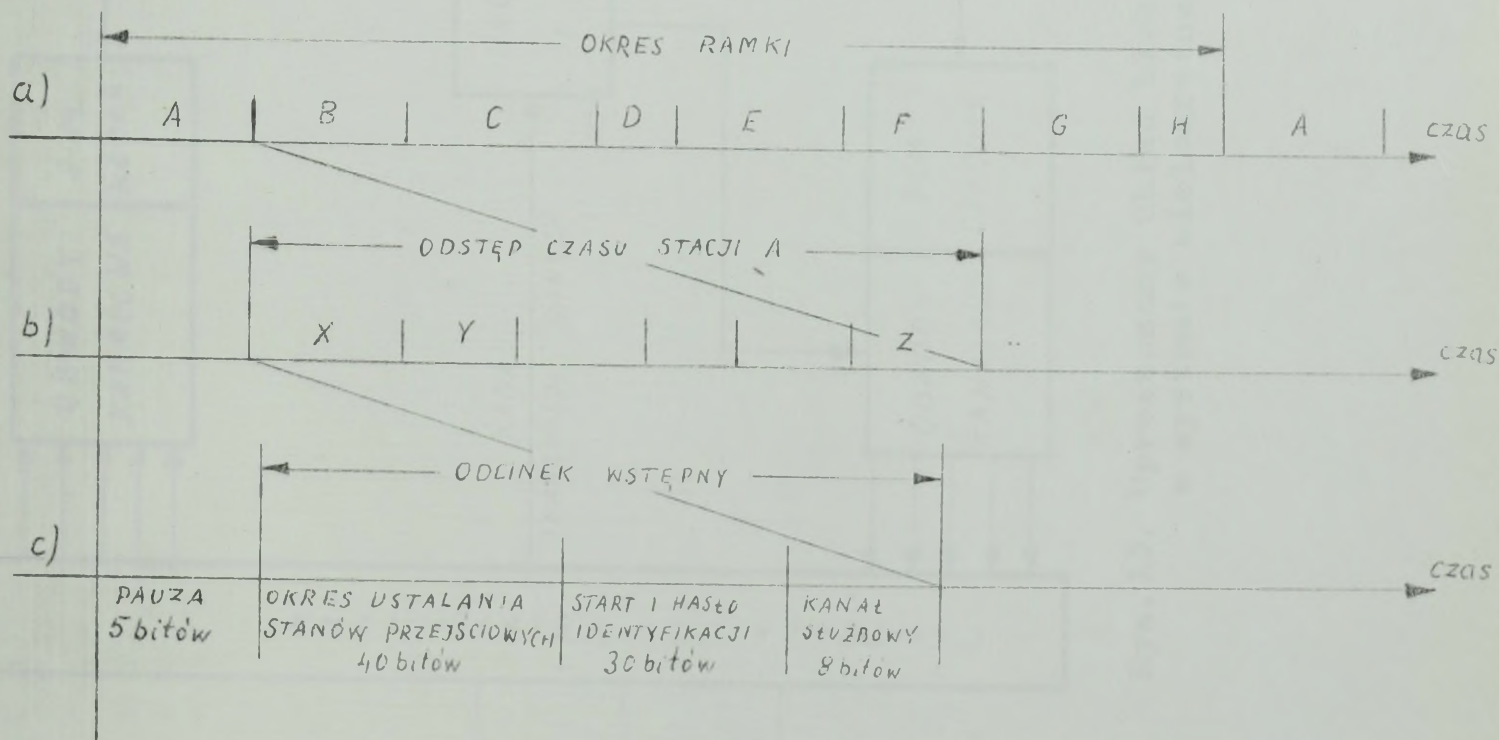 OKRES RAMKI
a)
A B C D E F G H A czas
ODSTĘP CZASU STACJI A
b)
X Y Z czas
ODCINEK WSTĘPNY
c)
czas
PAUZA
5 bitów
OKRES USTALANIA
STANÓW PRZEJŚCIOWYCH
40 bitów
START I HASŁO
IDENTYFIKACJI
30 bitów
KANAŁ
SŁUŻBOWY
8 bitów